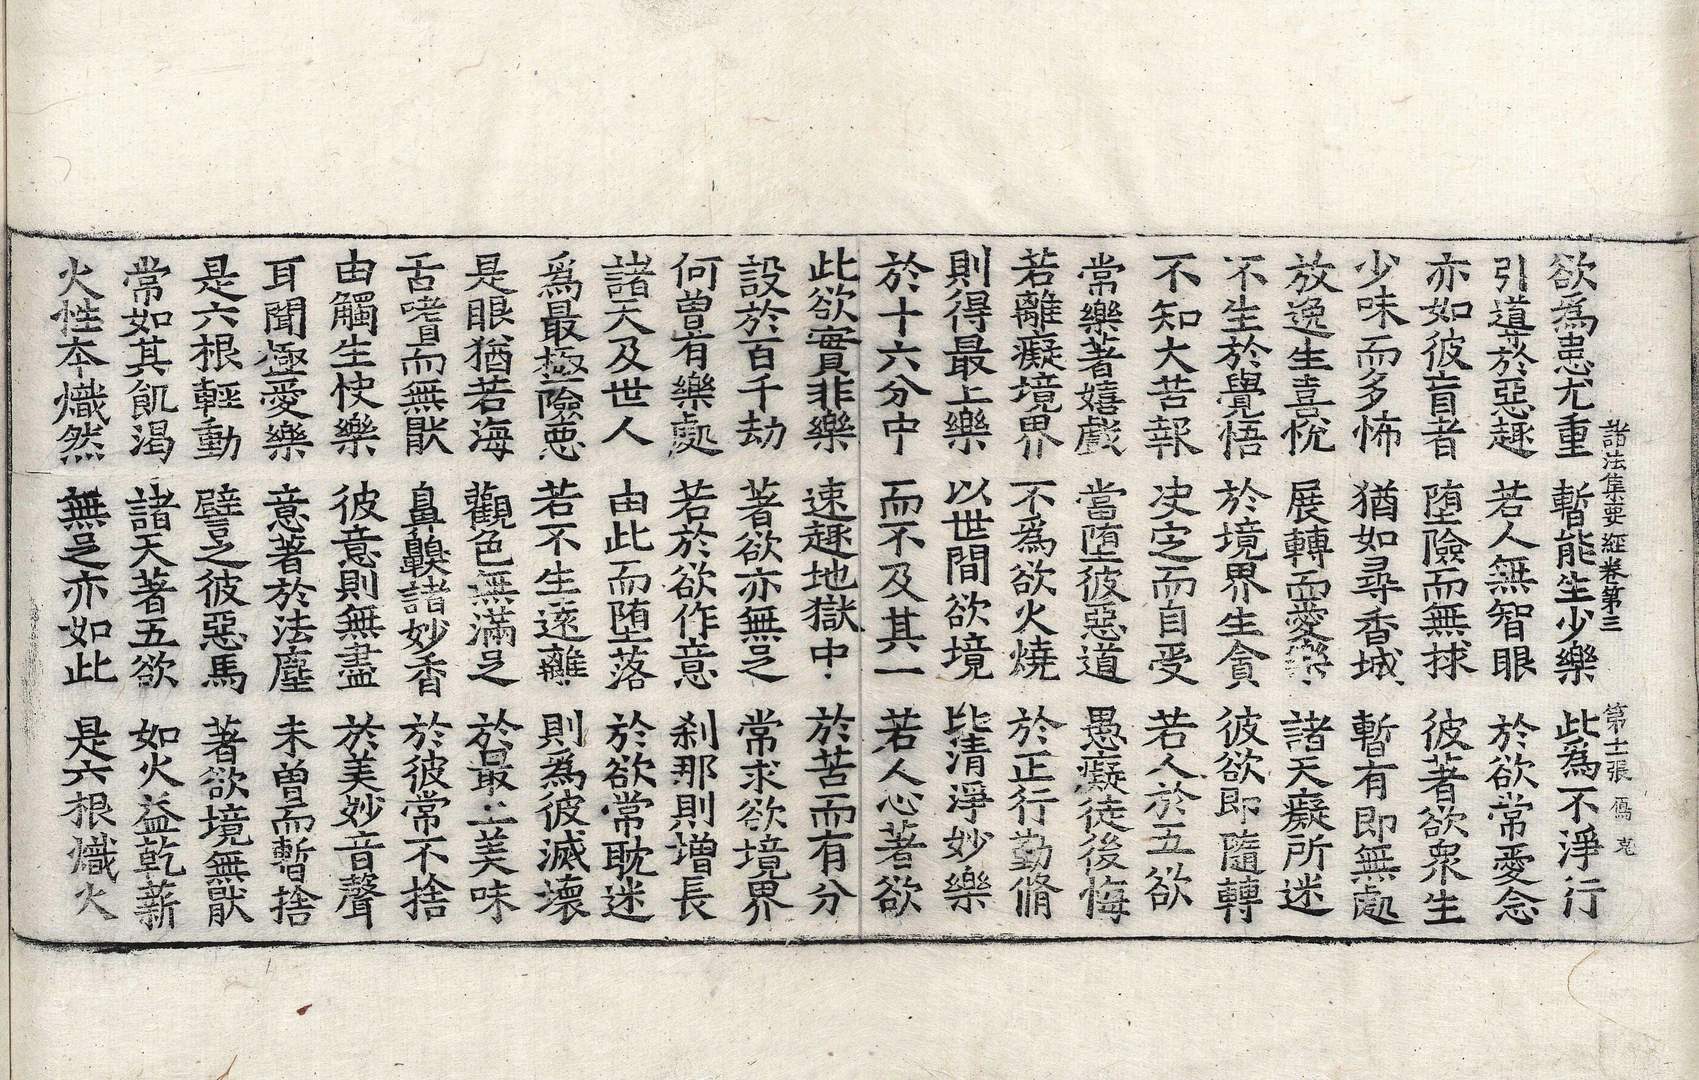 諸法集要經卷第三　第十二張　傿　克
欲爲患尤重　暫能生少樂　此爲不淨行
引導於惡趣　若人無智眼　於欲常愛念
亦如彼盲者　堕險而無捄　彼著欲衆生
少味而多怖　猶如尋香城　暫有即無處
放逸生喜恱　展轉而愛樂　諸天癡所迷
不生於覺悟　於境界生貪　彼欲即隨轉
不知大苦報　决定而自受　若人於五欲
常樂著嬉戲　當堕彼惡道　愚癡徒後悔
若離癡境界　不爲欲火燒　於正行勤脩
則得最上樂　以世間欲境　比清淨妙樂
於十六分中　而不及其一　若人心著欲
此欲實非樂　速趣地獄中　於苦而有分
設於百千劫　著欲亦無足　常求欲境界
何曾有樂處　若於欲作意　刹那則增長
諸天及世人　由此而堕落　於欲常耽迷
爲最極險惡　若不生遠離　則爲彼滅壞
是眼猶若海　觀色無滿足　於最上美味
舌嗜而無猒　鼻齅諸妙香　於彼常不捨
由觸生快樂　彼意則無盡　於美妙音聲
耳聞極愛樂　意著於法塵　未曾而暫捨
是六根輕動　譬之彼惡馬　著欲境無猒
常如其飢渴　諸天著五欲　如火益乾薪
火性本熾然　無足亦如此　是六根熾火